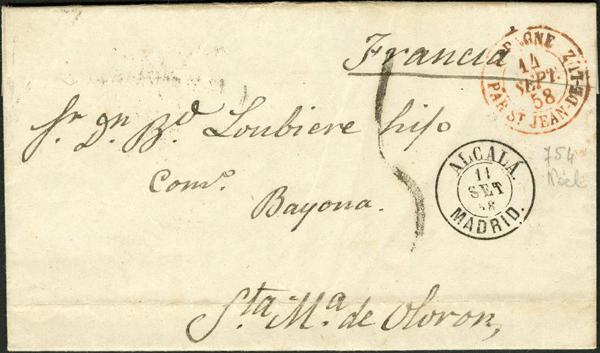 Francia
ESPAGNE
14
SEPT.
58
PAR ST JEAN-DE-LUZ
Sr. Dn. Bd. Loubiere hijo
ALCALÁ.
11
SET
58
MADRID.
754
Bayona.
Sta Ma. de Oloron,